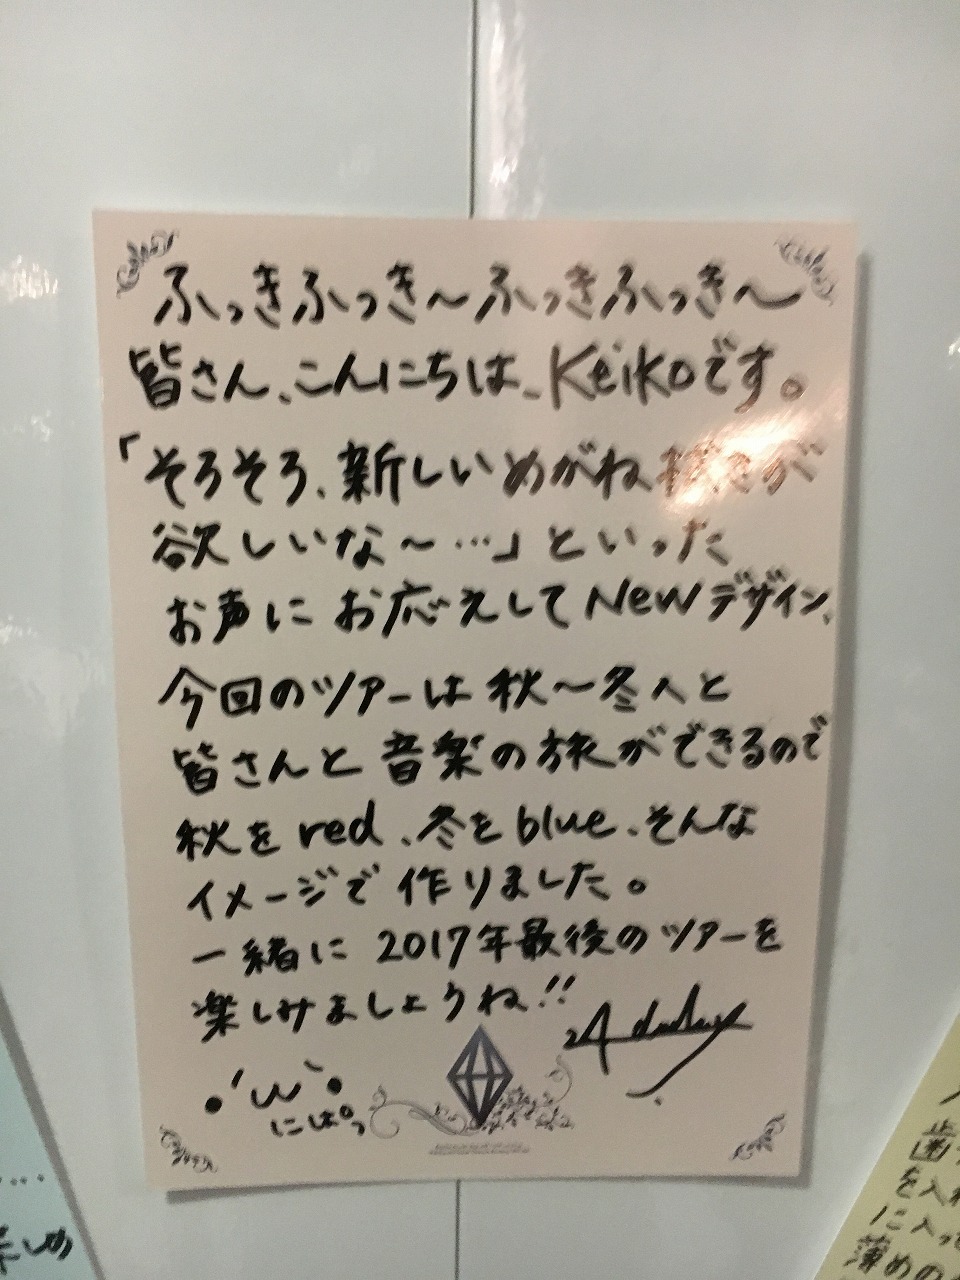 ふっきふっき〜ふっきふっき〜
皆さん、こんにちは、Keikoです。
「そろそろ、新しいめがね拭きが
欲しいな〜…」といった
お声にお応えしてNewデザイン、
今回のツアーは秋〜冬へと
皆さんと音楽の旅ができるので
秋をred、冬をblue、そんな
イメージで作りました。
一緒に2017年最後のツアーを
楽しみましょうね!!
•'ω'•
にぱっ
歯
を入
に入っ
薄めの